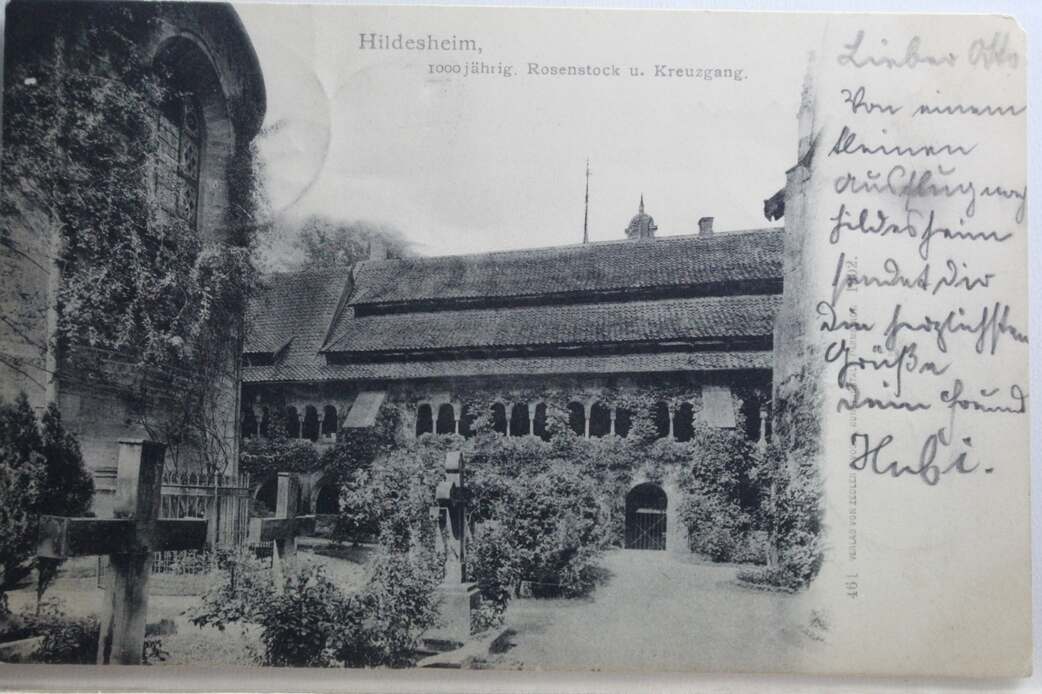 Hildesheim,
1000jährig. Rosenstock u. Kreuzgang.
Lieber Otto
Von einem
kleinen
Ausflug nach
Hildesheim
sendet dir
den herzlichsten
Grüße
Dein Freund
Hubi.
461 VERLAG VON ZEDLER 1902.